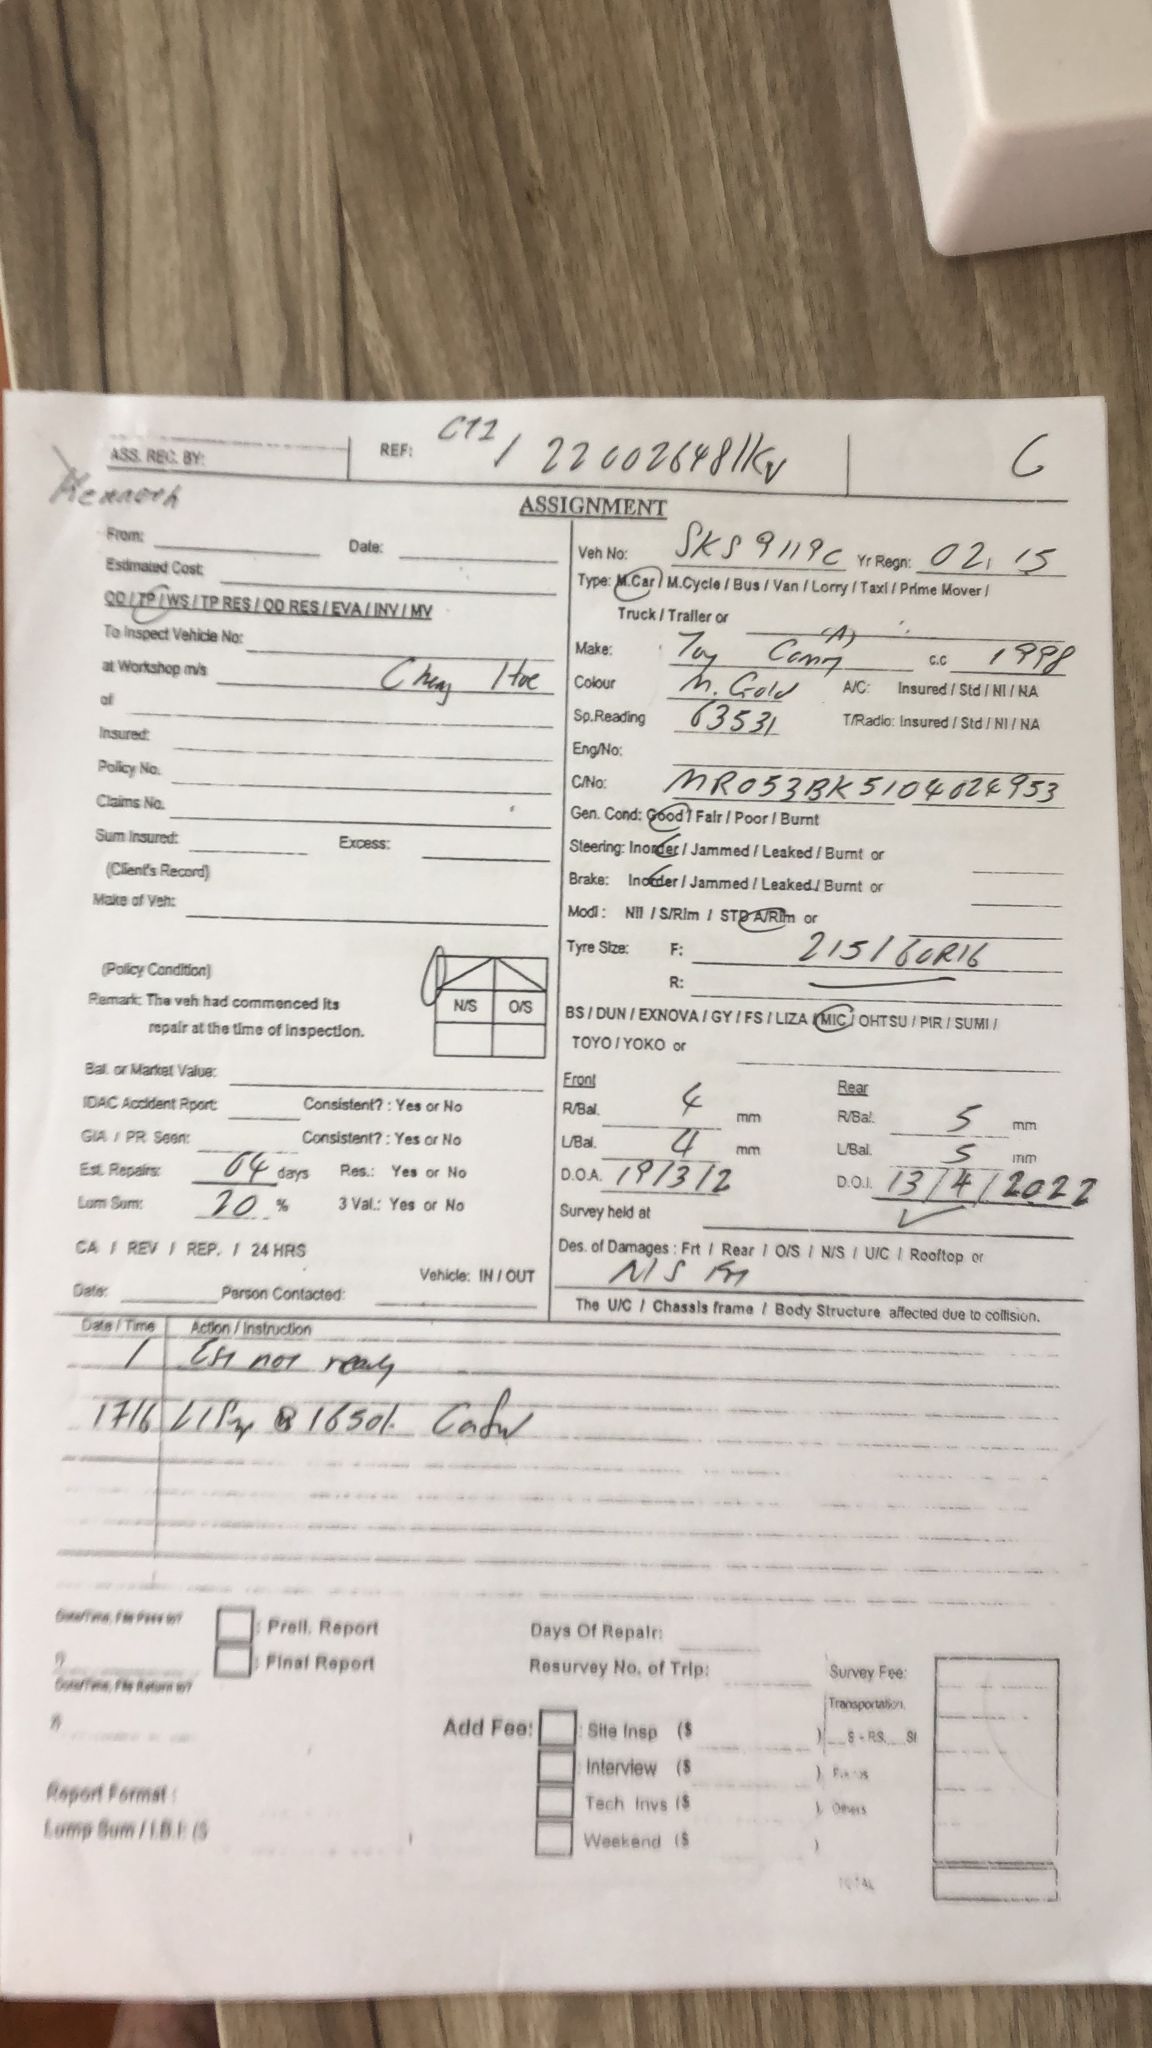 ASS. REC. BY:
REF: CT2 / 22002648
Kenneth
ASSIGNMENT
From: Date:
Estimated Cost:
OD / TP / WS / TP RES / OD RES / EVA / INV / MV
To Inspect Vehicle No:
at Workshop m/s Cheng Hoe
of
Insured:
Policy No.
Claims No.
Sum Insured: Excess:
(Client's Record)
Make of Veh:
(Policy Condition)
Remark: The veh had commenced its
repair at the time of inspection.
N/S O/S
Bal. or Market Value:
IDAC Accident Rport: Consistent? : Yes or No
GIA / PR Seen: Consistent? : Yes or No
Est. Repairs: 04 days Res.: Yes or No
Lum Sum: 20 % 3 Val.: Yes or No
CA / REV / REP. / 24 HRS
Vehicle: IN / OUT
Date: Person Contacted:
Veh No: SKS 9119C Yr Regn: 02. 15
Type: M.Car / M.Cycle / Bus / Van / Lorry / Taxi / Prime Mover /
Truck / Trailer or
(A)
Make: Toy Camry c.c 1998
Colour M. Gold A/C: Insured / Std / NI / NA
Sp.Reading 63531 T/Radio: Insured / Std / NI / NA
Eng/No:
C/No: MR053BK5104024953
Gen. Cond: Good / Fair / Poor / Burnt
Steering: Inorder / Jammed / Leaked / Burnt or
Brake: Inorder / Jammed / Leaked / Burnt or
Modi : Nil / S/Rim / STD A/Rim or
Tyre Size: F: 215/60R16
R:
BS / DUN / EXNOVA / GY / FS / LIZA / MIC / OHTSU / PIR / SUMI /
TOYO / YOKO or
Front Rear
R/Bal. 4 mm R/Bal. 5 mm
L/Bal. 4 mm L/Bal. 5 mm
D.O.A. 19/3/2 D.O.I. 13/4/2022
Survey held at
Des. of Damages : Frt / Rear / O/S / N/S / U/C / Rooftop or
N/S Frt
The U/C / Chassis frame / Body Structure affected due to collision.
Date / Time Action / Instruction
/ Est not ready
17/6 1650/-
Date/Time, File Pass to?
: Preli. Report
: Final Report
Date/Time, File Return to?
Days Of Repair:
Resurvey No. of Trip:
Survey Fee:
Transportation
Add Fee: : Site Insp ($ ) S - RS. SI
: Interview ($ )
: Tech Invs ($ ) Others
: Weekend ($ )
Report Format :
Lump Sum / I.B.I: ($
TOTAL